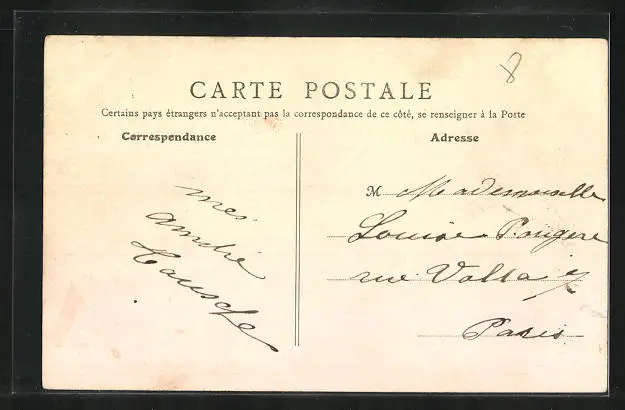 8
CARTE POSTALE
Certains pays étrangers n'acceptant pas la correspondance de ce côté, se renseigner à la Poste
Correspondance
Adresse
mes
M Mademoiselle
Louise
rue Volta 7
Paris